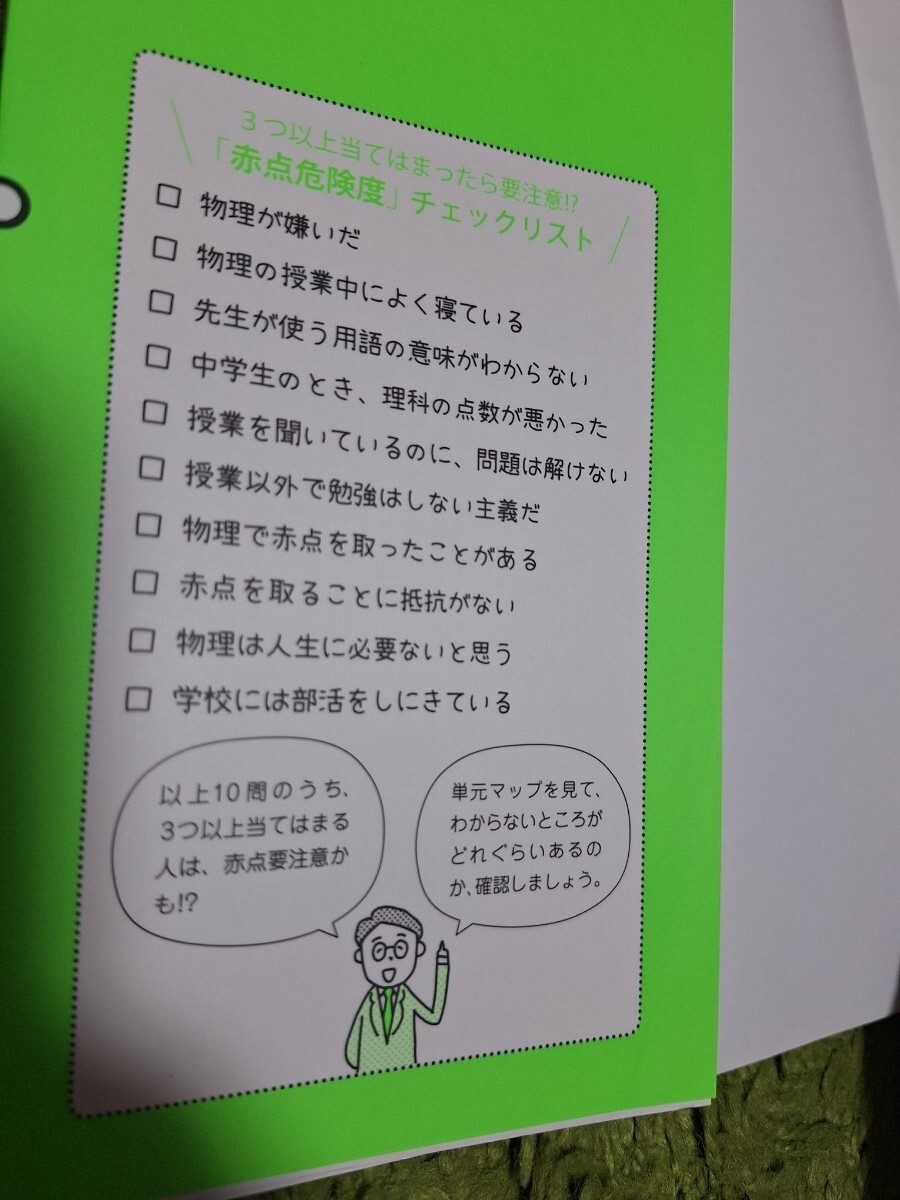 3つ以上当てはまったら要注意!?
「赤点危険度」チェックリスト
□ 物理が嫌いだ
□ 物理の授業中によく寝ている
□ 先生が使う用語の意味がわからない
□ 中学生のとき、理科の点数が悪かった
□ 授業を聞いているのに、問題は解けない
□ 授業以外で勉強はしない主義だ
□ 物理で赤点を取ったことがある
□ 赤点を取ることに抵抗がない
□ 物理は人生に必要ないと思う
□ 学校には部活をしにきている
以上10問のうち、
3つ以上当てはまる
人は、赤点要注意か
も!?
単元マップを見て、
わからないところが
どれぐらいあるの
か、確認しましょう。